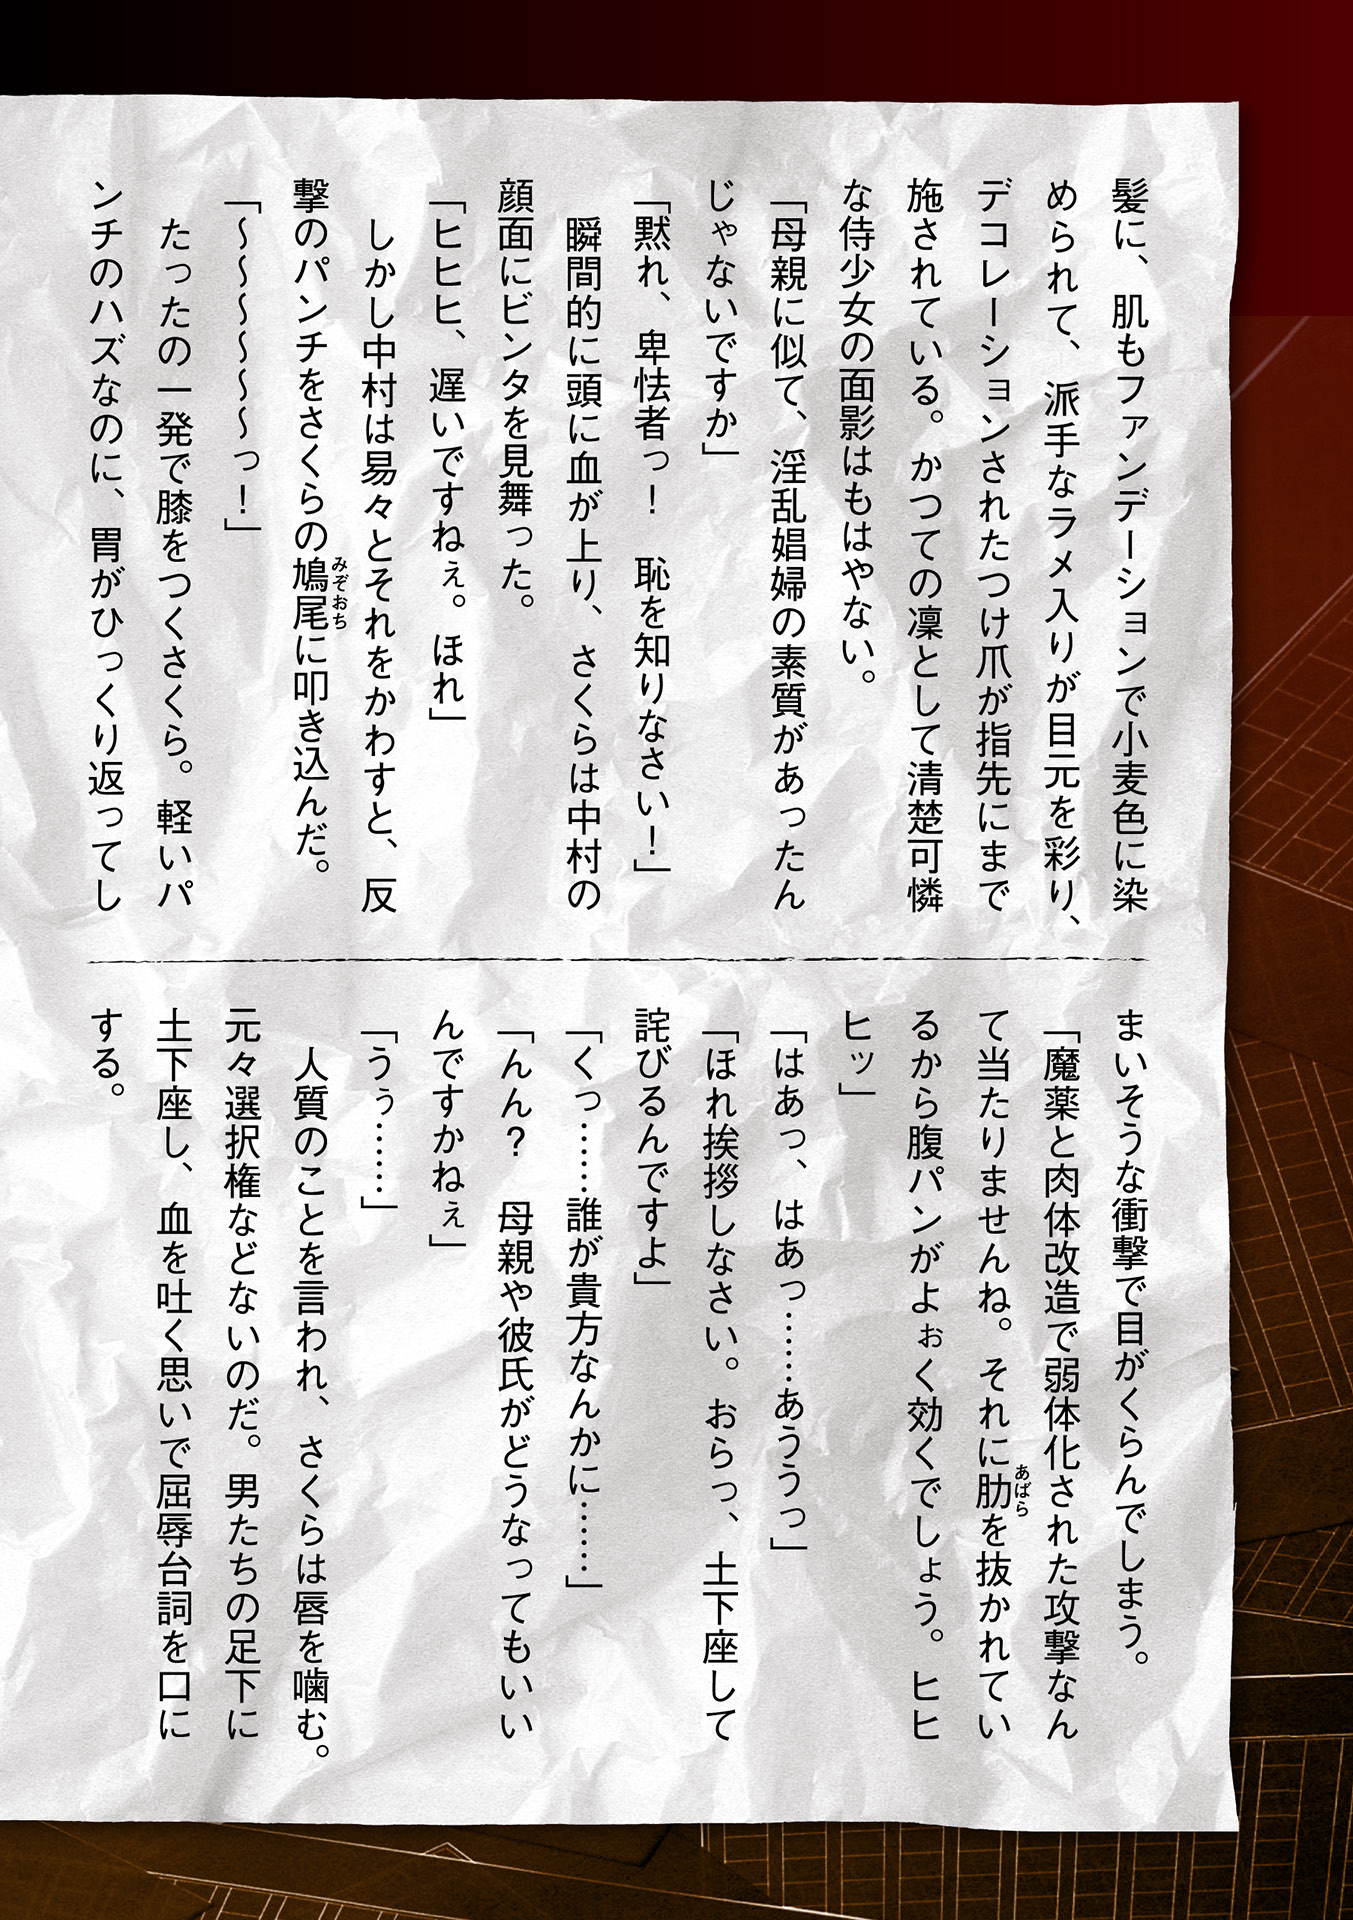 髪に、肌もファンデーションで小麦色に染
められて、派手なラメ入りが目元を彩り、
デコレーションされたつけ爪が指先にまで
施されている。かつての凜として清楚可憐
な侍少女の面影はもはやない。
「母親に似て、淫乱娼婦の素質があったん
じゃないですか」
「黙れ、卑怯者っ！　恥を知りなさい！」
　瞬間的に頭に血が上り、さくらは中村の
顔面にビンタを見舞った。
「ヒヒヒ、遅いですねぇ。ほれ」
　しかし中村は易々とそれをかわすと、反
撃のパンチをさくらの鳩尾に叩き込んだ。
みぞおち
「〜〜〜〜〜〜っ！」
　たったの一発で膝をつくさくら。軽いパ
ンチのハズなのに、胃がひっくり返ってし
まいそうな衝撃で目がくらんでしまう。
「魔薬と肉体改造で弱体化された攻撃なん
て当たりませんね。それに肋を抜かれてい
あばら
るから腹パンがよぉく効くでしょう。ヒヒ
ヒッ」
「はあっ、はあっ……あううっ」
「ほれ挨拶しなさい。おらっ、土下座して
詫びるんですよ」
「くっ……誰が貴方なんかに……」
「んん？　母親や彼氏がどうなってもいい
んですかねぇ」
「うぅ……」
　人質のことを言われ、さくらは唇を噛む。
元々選択権などないのだ。男たちの足下に
土下座し、血を吐く思いで屈辱台詞を口に
する。